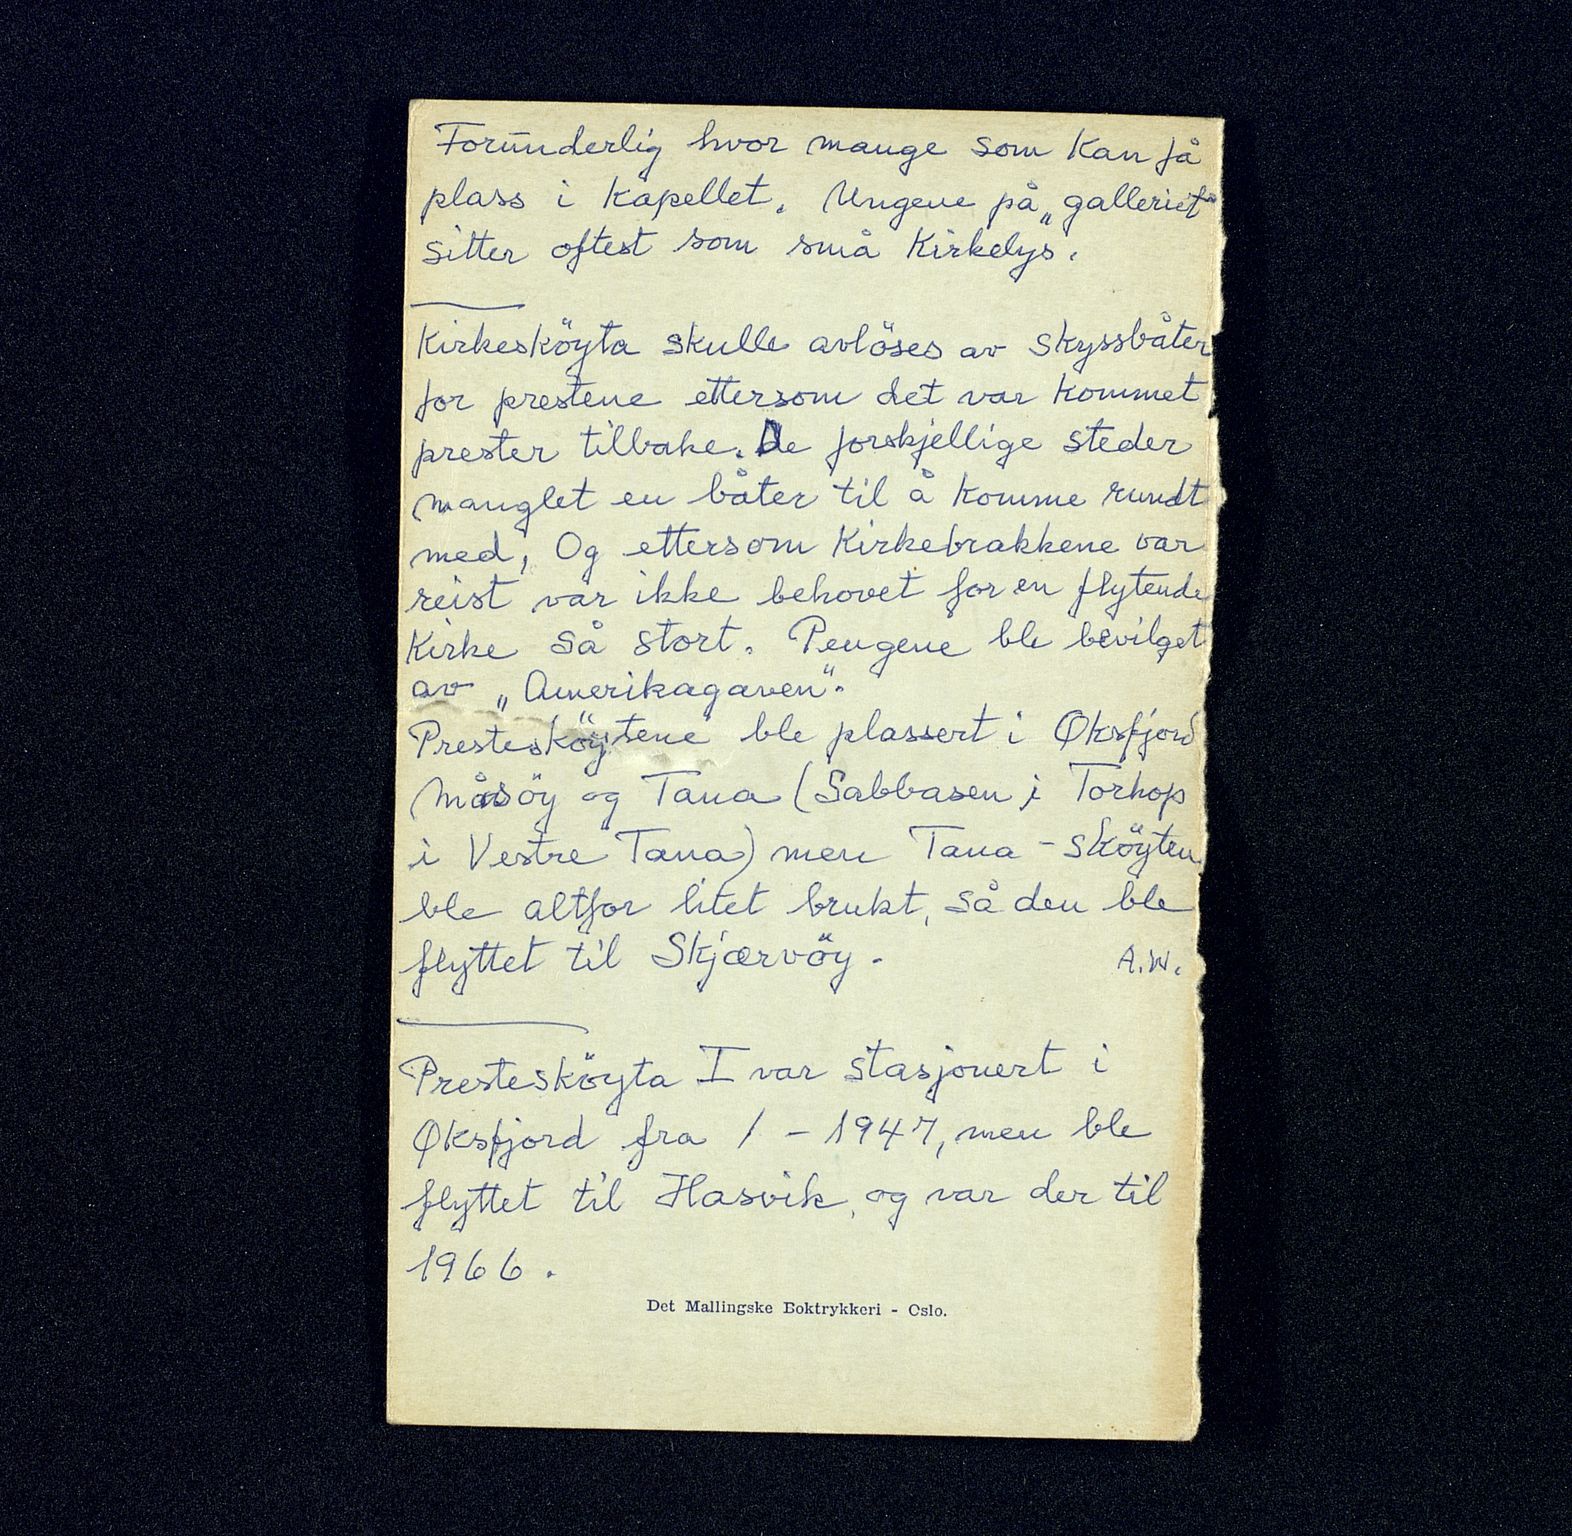 Forunderlig hvor mange som kan få
plass i kapellet. Ungene på „galleriet"
sitter oftest som små kirkelys.
Kirkesköyta skulle avlöses av skyssbåter
for prestene ettersom det var kommet
prester tilbake. De forskjellige steder
manglet en båter til å komme rundt
med, Og ettersom Kirkebrakkene var
reist var ikke behovet for en flytende
Kirke så stort. Pengene ble bevilget
av „Amerikagaven".
Prestesköytene ble plassert i Øksfjord
Måsöy og Tana (Sabbasen i Torhop
i Vestre Tana) men Tana - sköyten
ble altfor litet brukt, så den ble
flyttet til Skjærvöy. A.W.
Prestesköyta I var stasjonert i
Øksfjord fra / - 1947, men ble
flyttet til Hasvik, og var der til
1966.
Det Mallingske Boktrykkeri - Oslo.